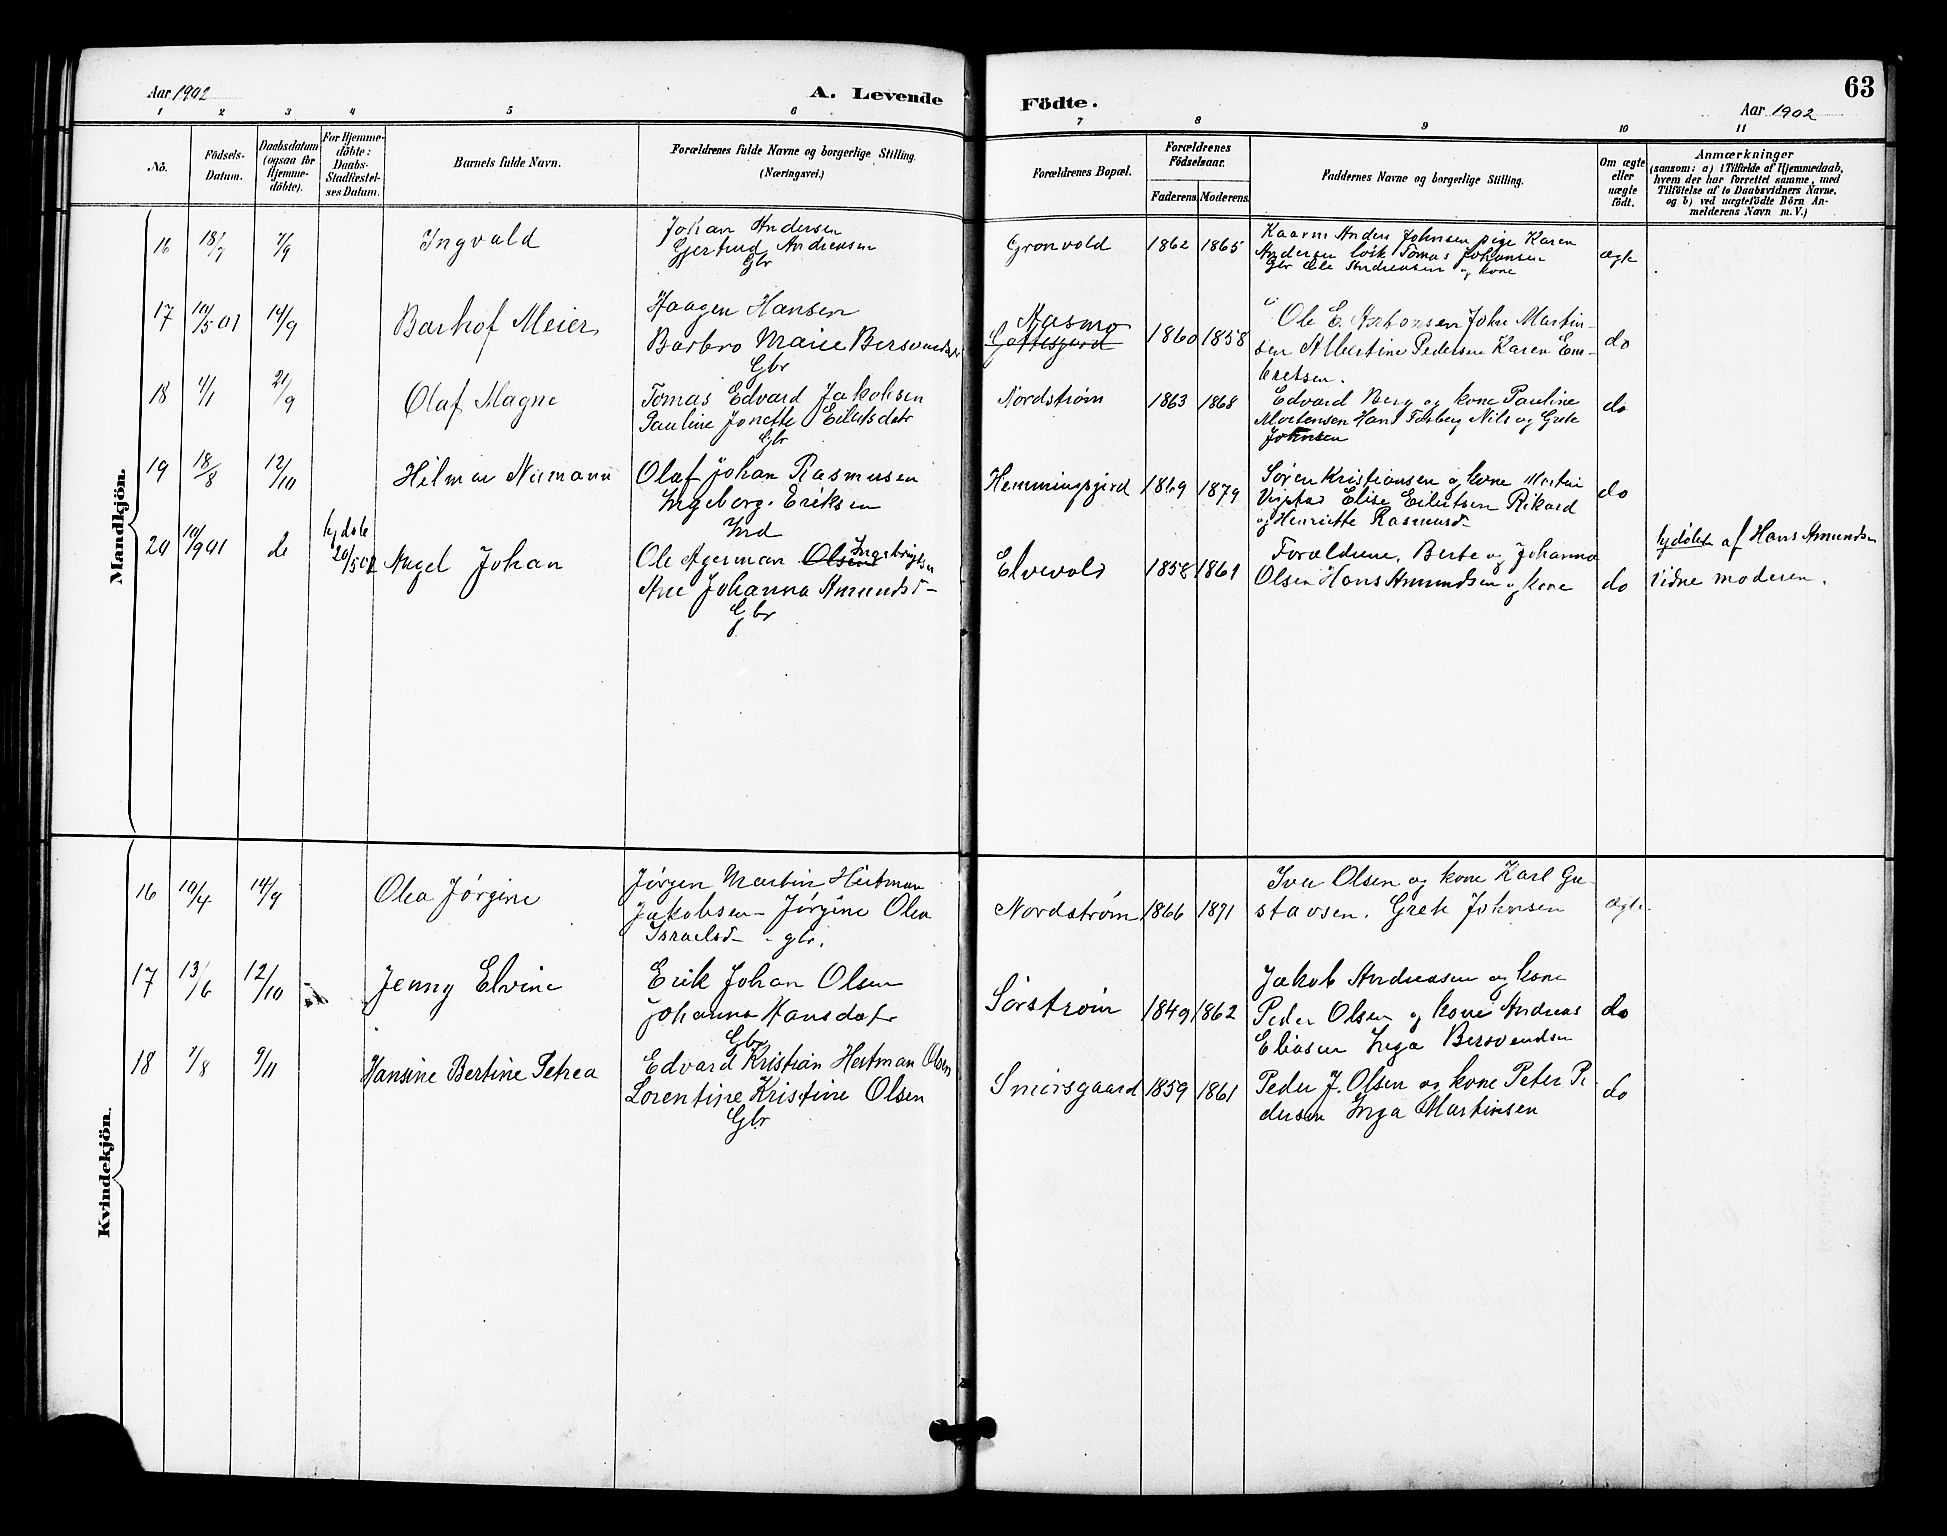 Aar 1902
A. Levende
Födte.
Aar 1902
63
1 2 3 4 5 6 7 8 9 10 11
No.
Födsels-
Datum.
Daabsdatum
(ogsaa for
Hjemme-
döbte).
For Hjemme-
döbte:
Daabs-
Stadfæstel-
ses Datum.
Barnets fulde Navn.
Forældrenes fulde Navne og borgerlige Stilling.
(Næringsvei.)
Forældrenes Bopæl.
Forældrenes
Födselsaar.
Faderens
Moderens
Faddernes Navne og borgerlige Stilling.
Om ægte
eller
uægte
födt.
Anmærkninger
(saasom: a) i Tilfælde af Hjemmedaab,
hvem der har forrettet samme, med
Tilföielse af to Daabsvidners Navne,
og b) ved uægtefödte Börn An-
melderens Navn m. V.)
Mandkjön.
16 18/7 7/9 Ingvald
Johan Andersen
Gjertrud Andreasen
Gbr
Grønvold 1862 1865
Kaarm Anders Johnsen pige Karen
Andersen løsk Tomas Johansen
Gbr Ole Andreasen og kone
ægte
17 10/5 01 14/9 Barhof Meier
Haagen Hansen
Barbro Marie
Gbr
Aasmo
1860 1858
Ole E. Antonsen John Martin-
sen Albertine Pedersen Karen Em-
bretsen.
do
18 4/1 21/9 Olaf Magne
Tomas Edvard Jakobsen
Pauline Jonette Eilertsdatr
Gbr
Nordstrøm 1863 1868
Edvard Berg og kone Pauline
Mortensen Hans Forsberg Nils og Grete
Johnsen
do
19 18/8 12/10 Hilmar Nirmann
Olaf Johan Rasmusen
Ingeborg Eriksen
Ind
Hemmingsjord 1869 1879
Søren Kristiansen og kone Martin
Elise Eilertsen Rikard
og Henriette Rasmusd-
do
20 10/9 01 do
hjdøbt
20/5 02
Nagel Johan
Ole Agerman Olsen Ingebrigtsen
Ane Johanna Amundsd-
Gbr
Elvevold 1858 1861
Forældrene, Berte og Johanna
Olsen Hans Amundsen og kone
do
hjdøbt af Hans Amundsen
vidne moderen.
Kvindekjön.
16 10/4 14/9 Olea Jørgine
Jørgen Martin Hertman
Jakobsen - Jørgine Olea
Israelsd- - gbr.
Nordstrøm 1866 1871
Iver Olsen og kone Karl Gu-
stavsen. Grete Johnsen
ægte
17 13/6 12/10 Jenny Elvine
Erik Johan Olsen
Johanna Hansdatr
Gbr
Sørstrøm 1849 1862
Jakob Andreasen og kone
Peder Olsen og kone Andreas
Eliasen Inga Bersvendsen
do
18 7/8 9/11 Hansine Bertine Petrea
Edvard Kristian Hertman Olsen
Lorentine Kristine Olsen
Gbr
Smørsgaard 1859 1861
Peder J. Olsen og kone Peter Pe-
dersen Inga Martinsen
do